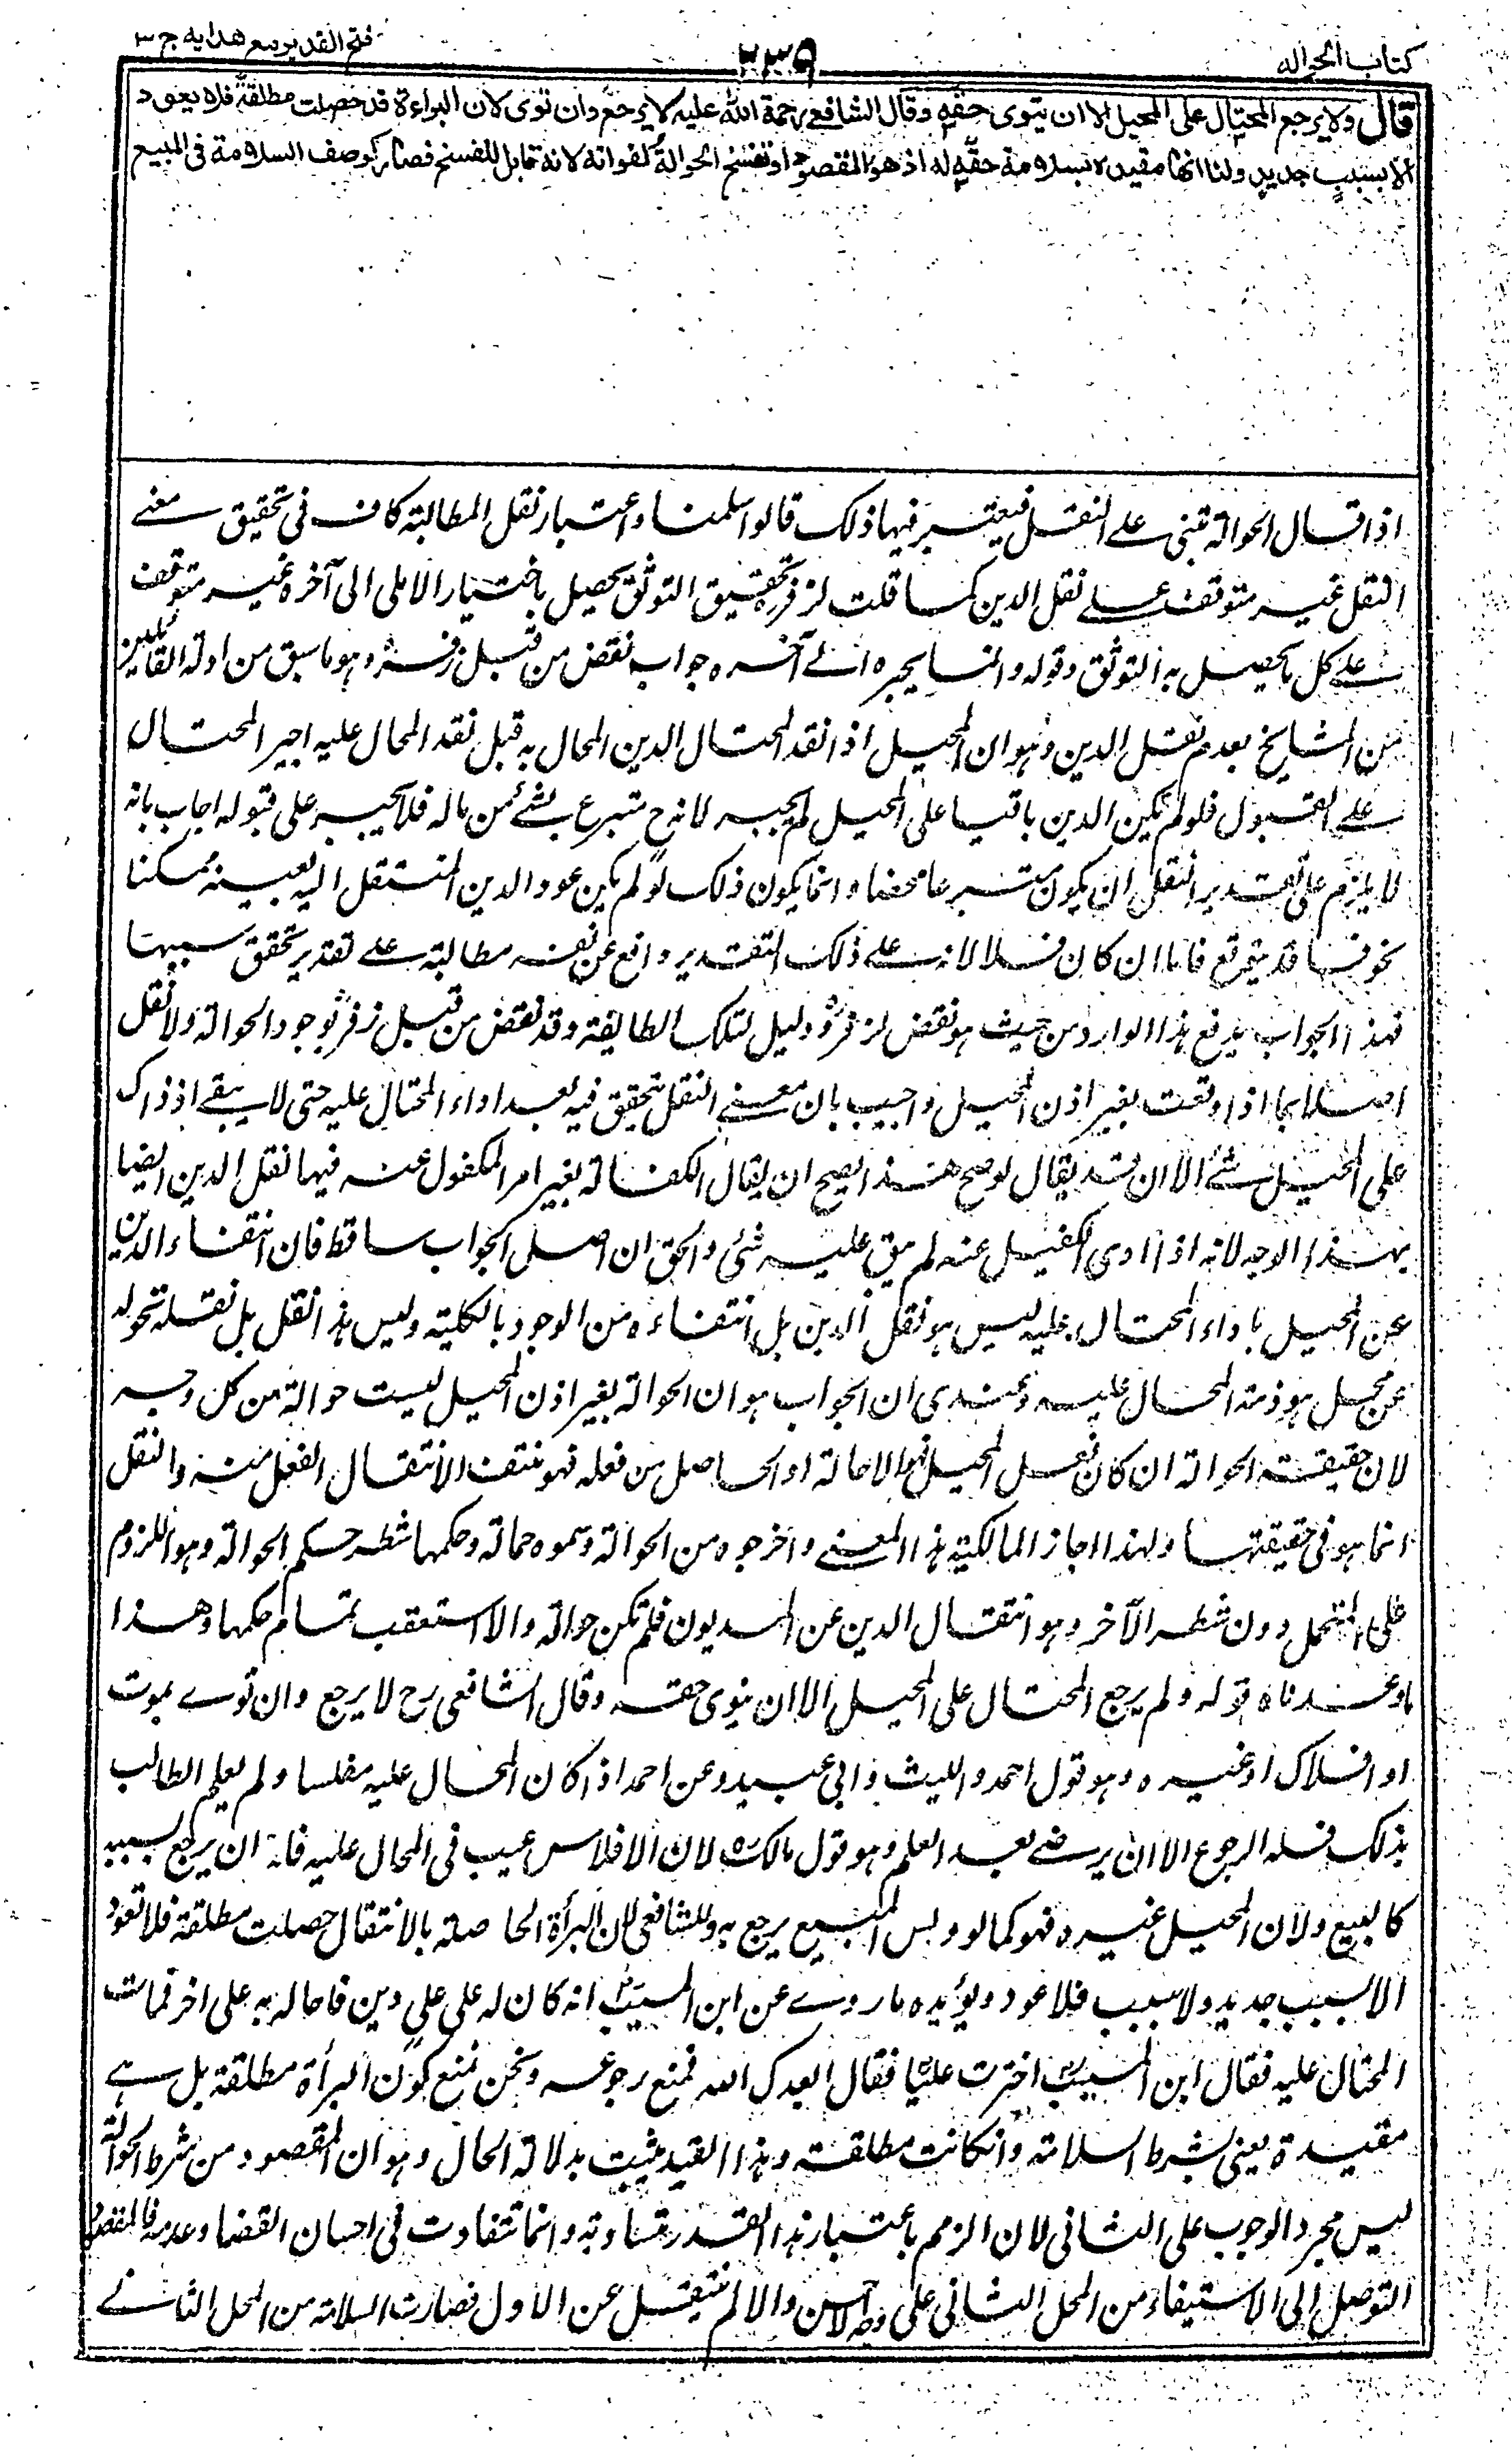 كتاب الحواله
٢٣٩
فتح القدير مع هدايه ج ٣
قال ولا يرجع المحتال على المحيل الا ان يتوى حقه وقال الشافعي رحمة الله عليه لا يرجع وان توى لان البراءة قد حصلت مطلقة فلا يعود
الا بسبب جديد ولنا انها مقيدة بسلامة حقه له اذ هو المقصود او تنفسخ الحوالة لفواته لانه قابل للفسخ فصار كوصف السلامة فى المبيع
اذا قال الحوالة تبنى على النقل فيعتبر فيها ذلك قالوا سلمنا واعتبار نقل المطالبة كاف فى تحقيق معنى
النقل غير متوقف على نقل الدين كما قلت لزفرؒ تحقيق التوثق يحصل باختيار الاملى الى آخره غير متوقف
على كل ما يحصل به التوثق وقوله وانما يجبره الى آخره جواب نقض من قبل زفر وهو ما سبق من ادلة القائلين
من المشايخ بعدم نقل الدين وهو ان المحيل اذا نقد المحتال الدين المحال به قبل نقد المحال عليه اجبر المحتال
على القبول فلو لم يكن الدين باقيا على المحيل لم يجبر لانه ح متبرع بشئ من ماله فلا يجبر على قبوله اجاب بانه
لا يلزم على تقدير النقل ان يكون متبرعا محضا وانما يكون ذلك لو لم يكن عود الدين المنتقل اليه بعينه ممكنا
نحو فما قد يتوقع فاما ان كان فلا لانه على ذلك التقدير دافع عن نفسه مطالبة على تقدير تحقق سببها
فهذا الجواب يدفع هذا الوارد من حيث هو نقض لزفرؒ ودليل لتلك الطايفة وقد نقض من قبل زفرؒ بوجود الحوالة ولا نقل
اصلا بما اذا وقعت بغير اذن المحيل واجيب بان معنى النقل يتحقق فيه بعد اداء المحتال عليه حتى لا يبقى اذ ذاك
على المحيل شئ الا ان قد يقال لو صح هذا يصح ان يقال الكفالة بغير امر المكفول عنه فيها نقل الدين ايضا
بهذا الوجه لانه اذا ادى الكفيل عنه لم يبق عليه شئ والحق ان اصل الجواب ساقط فان انتفاء الدين
عن المحيل باداء المحتال عليه ليس هو نقل الدين بل انتفاءه من الوجود بالكلية وليس هذا نقل بل نقله تحوله
عن محل هو ذمة المحال عليه وعندى ان الجواب هو ان الحوالة بغير اذن المحيل ليست حوالة من كل وجه
لان حقيقة الحوالة ان كان فعل المحيل فهو الاحالة او الحاصل من فعله فهو منتف لانتفاء الفعل منه والنقل
انما هو فى حقيقتها ولهذا اجاز المالكية هذا المعنى واخرجوه من الحوالة وسموه حمالة وحكمها شطر حكم الحوالة وهو اللزوم
على المتحمل دون شطر الآخر وهو انتقال الدين عن المديون فلم تكن حوالة والا استعقب تمام حكمها وهذا
ما وعدناه قوله ولم يرجع المحتال على المحيل الا ان يتوى حقه وقال الشافعى رح لا يرجع وان توى بموت
او افلاس او غيره وهو قول احمد والليث وابى عبيد وعن احمد اذا كان المحال عليه مفلسا ولم يعلم الطالب
بذلك فله الرجوع الا ان يرضى بعد العلم وهو قول مالكؒ لان الافلاس عيب فى المحال عليه فله ان يرجع بسببه
كالبيع ولان المحيل غيره فهو كما لو دلس المبيع يرجع به وللشافعى ان البرأة الحاصلة بالانتقال حصلت مطلقة فلا تعود
الا بسبب جديد ولا سبب فلا عود ويؤيده ما روى عن ابن المسيب انه كان له على على دين فاحاله به على اخر فمات
المحتال عليه فقال ابن المسيب اخترت عليا فقال ابعدك الله فمنع رجوعه ونحن نمنع كون البرأة مطلقة بل هى
مقيدة يعنى بشرط السلامة وان كانت مطلقة وهذا القيد مثبت بدلالة الحال وهو ان المقصود من شرط الحوالة
ليس مجرد الوجوب على الثانى لان الذمم باعتبار هذا القدر متساوية وانما تتفاوت فى احسان القضا وعدمه فالمقصود
التوصل الى الاستيفاء من المحل الثانى على وجه الاحسن والا لم ينتقل عن الاول فصارت السلامة من المحل الثانى